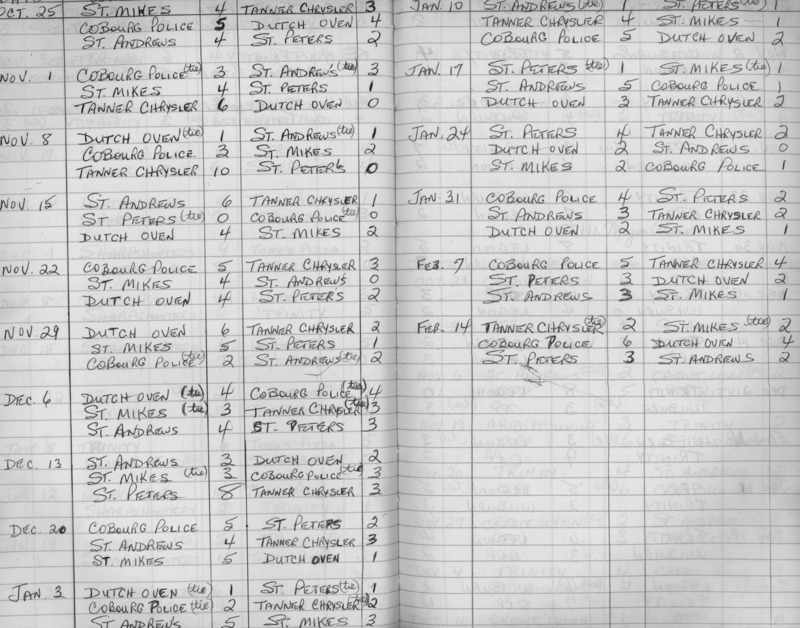 OCT. 25 ST. MIKES 4 TANNER CHRYSLER 3
COBOURG POLICE 5 DUTCH OVEN 4
ST. ANDREWS 4 ST. PETERS 2
NOV. 1 COBOURG POLICE (tie) 3 ST. ANDREWS (tie) 3
ST. MIKES 4 ST. PETERS 1
TANNER CHRYSLER 6 DUTCH OVEN 0
NOV. 8 DUTCH OVEN (tie) 1 ST. ANDREWS (tie) 1
COBOURG POLICE 3 ST. MIKES 2
TANNER CHRYSLER 10 ST. PETERS 0
NOV. 15 ST. ANDREWS 6 TANNER CHRYSLER 1
ST. PETERS (tie) 0 COBOURG POLICE (tie) 0
DUTCH OVEN 4 ST. MIKES 2
NOV. 22 COBOURG POLICE 5 TANNER CHRYSLER 3
ST. MIKES 4 ST. ANDREWS 0
DUTCH OVEN 4 ST. PETERS 2
NOV. 29 DUTCH OVEN 6 TANNER CHRYSLER 2
ST. MIKES 5 ST. PETERS 1
COBOURG POLICE (tie) 2 ST. ANDREWS (tie) 2
DEC. 6 DUTCH OVEN (tie) 4 COBOURG POLICE (tie) 4
ST. MIKES (tie) 3 TANNER CHRYSLER (tie) 3
ST. ANDREWS 4 ST. PETERS 3
DEC. 13 ST. ANDREWS 3 DUTCH OVEN 2
ST. MIKES (tie) 3 COBOURG POLICE (tie) 3
ST. PETERS 8 TANNER CHRYSLER 3
DEC. 20 COBOURG POLICE 5 ST. PETERS 2
ST. ANDREWS 4 TANNER CHRYSLER 3
ST. MIKES 5 DUTCH OVEN 1
JAN. 3 DUTCH OVEN (tie) 1 ST. PETERS (tie) 1
COBOURG POLICE (tie) 2 TANNER CHRYSLER (tie) 2
ST. ANDREWS 5 ST. MIKES 3
JAN. 10 ST. ANDREWS (tie) 1 ST. PETERS (tie) 1
TANNER CHRYSLER 4 ST. MIKES 1
COBOURG POLICE 5 DUTCH OVEN 2
JAN. 17 ST. PETERS (tie) 1 ST. MIKES (tie) 1
ST. ANDREWS 5 COBOURG POLICE 1
DUTCH OVEN 3 TANNER CHRYSLER 2
JAN. 24 ST. PETERS 4 TANNER CHRYSLER 2
DUTCH OVEN 2 ST. ANDREWS 0
ST. MIKES 2 COBOURG POLICE 1
JAN. 31 COBOURG POLICE 4 ST. PETERS 2
ST. ANDREWS 3 TANNER CHRYSLER 2
DUTCH OVEN 2 ST. MIKES 1
FEB. 7 COBOURG POLICE 5 TANNER CHRYSLER 4
ST. PETERS 3 DUTCH OVEN 2
ST. ANDREWS 3 ST. MIKES 1
FEB. 14 TANNER CHRYSLER (tie) 2 ST. MIKES (tie) 2
COBOURG POLICE 6 DUTCH OVEN 4
ST. PETERS 3 ST. ANDREWS 2